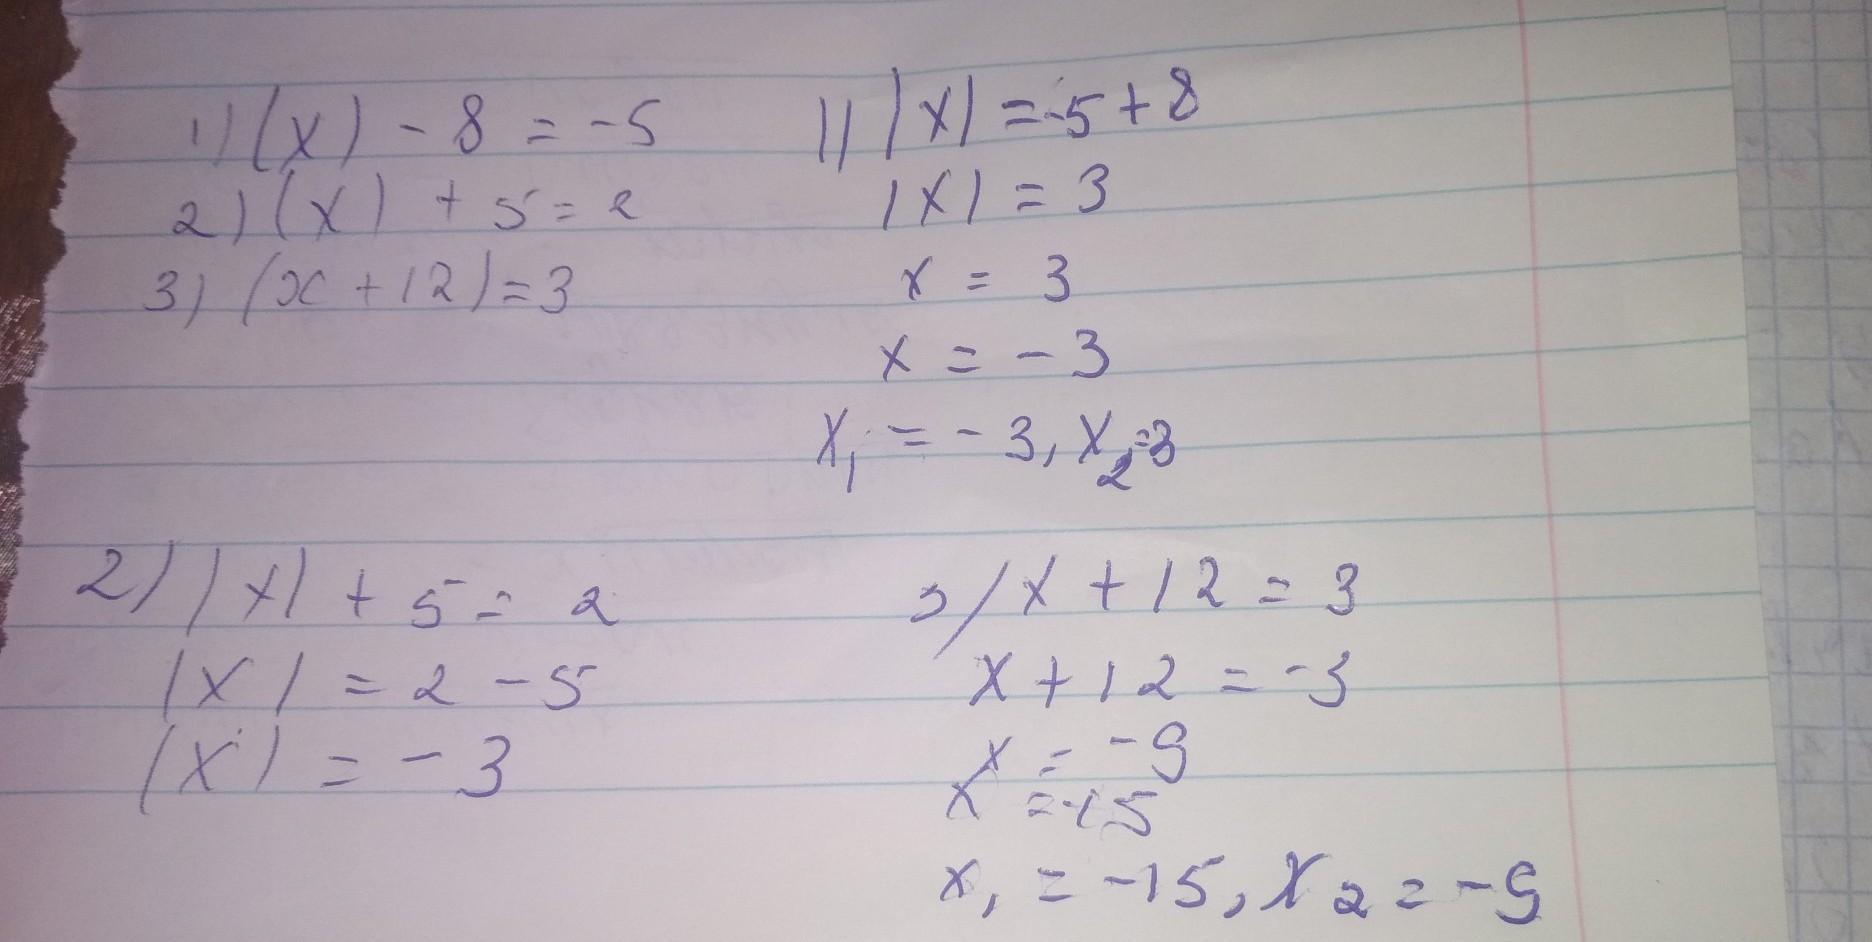 1) (x) - 8 = -5
2) (x) + 5 = 2
3) (x + 12) = 3
1) |x| = -5 + 8
|x| = 3
x = 3
x = -3
x₁ = -3, x₂ = 3
2) |x| + 5 = 2
|x| = 2 - 5
(x) = -3
3) x + 12 = 3
x + 12 = -3
x = -9
x = -15
x₁ = -15, x₂ = -9